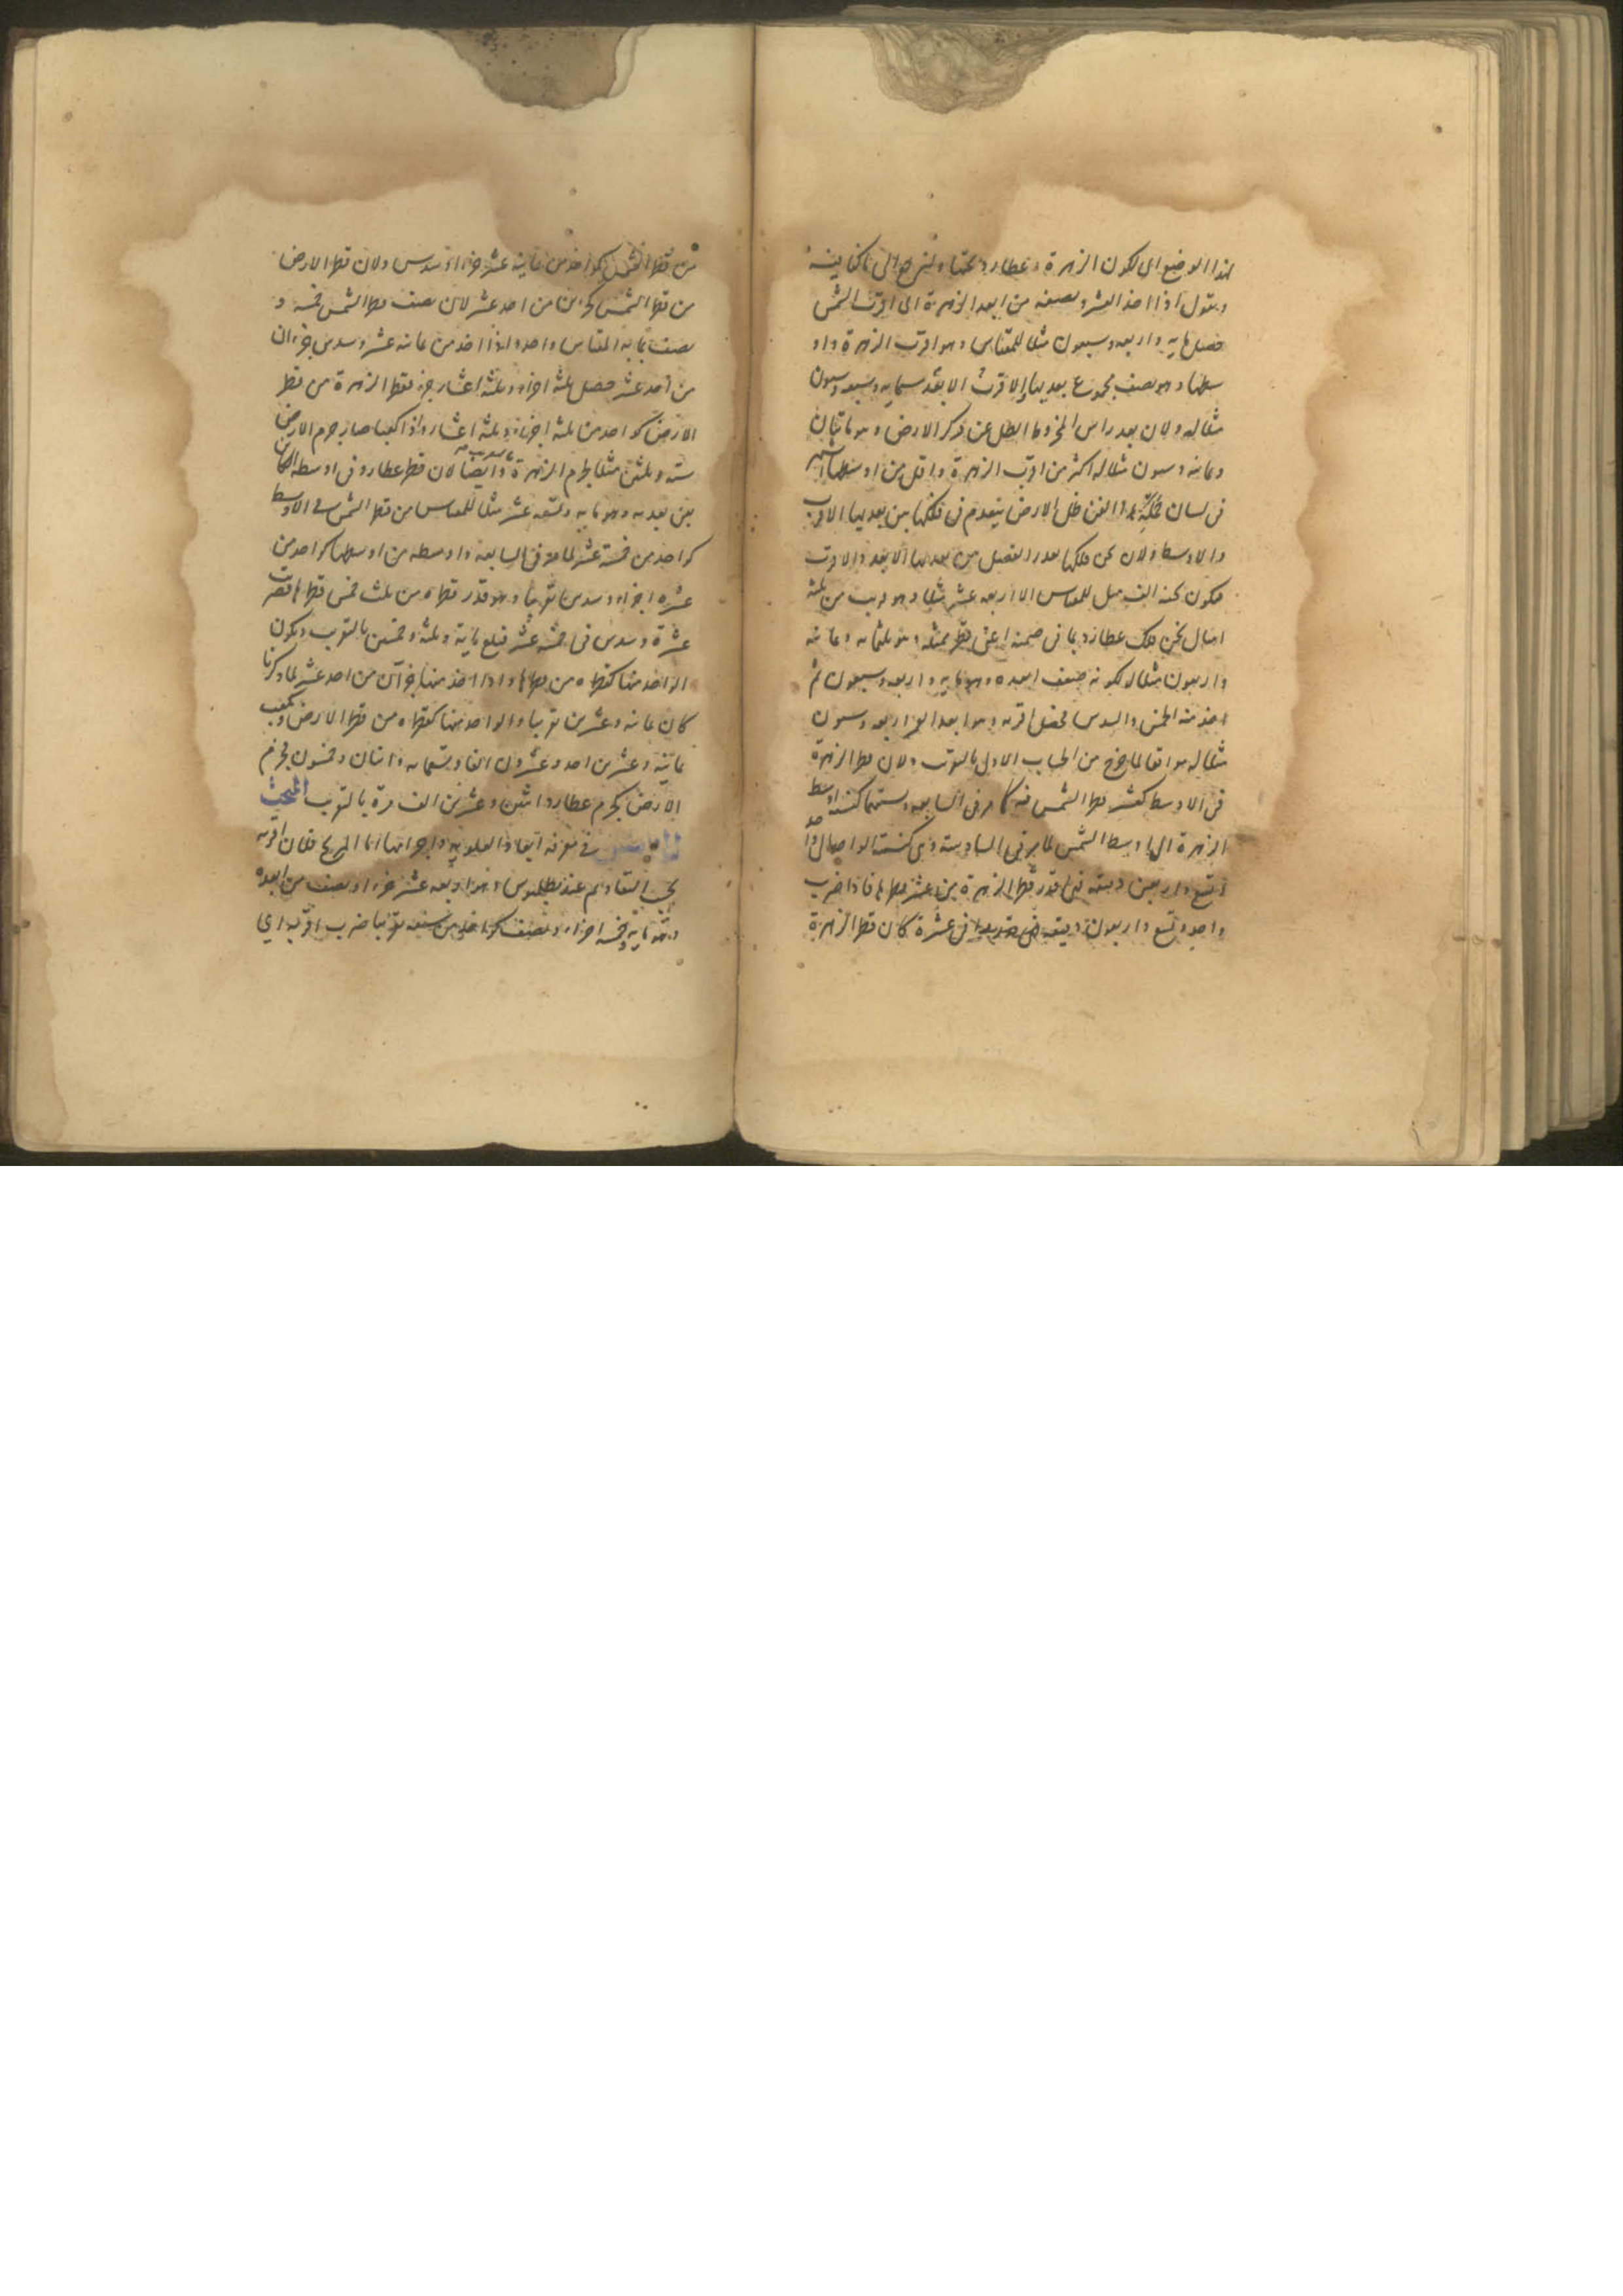 هذا الوضع الى لكون الزهرة وعطارد تحتها ولنرجع الى ما كنا فيه
ونقول اذا اخذ العشر ونصفه من ابعد الزهرة الى اقرب الشمس
حصل مايه واربعه وسبعون مثلا للمقياس وهو اقرب الزهرة واو
سطها وهو نصف مجموع بعديها الاقرب الابعد ستمايه وسبعه وسبعون
مثلا له ولان بعد راس المخروط الظل عن مركز الارض وهو مائتان
وثمانيه وستون مثلا له اكثر من اقرب الزهرة واقل من اوسطها اشتهر
فى لسان الفن ظل الارض ينعدم فى فلكها بين بعديها الاقرب
والاوسط ولان ثخن فلكها بقدر الفضل بين بعديها الابعد والاقرب
فيكون ثخنه الف مثل للمقياس الا اربعه عشر مثلا وهو قريب من ثلثة
امثال ثخن فلك عطارد بما فى ضمنه اعنى قطر ممثله وهو ثلثمايه وثمانيه
واربعون مثلا له لكونه ضعف ابعده وهو مايه واربعه وسبعون ثم
اخذ منه الخمس والسدس فحصل اقربه وهو ابعد القمر اربعه وستون
مثلا له موافقا لما خرج من الحساب الاول بالتقريب ولان قطر الزهرة
فى الاوسط كعشر قطر الشمس فيه كما مر فى السابعه ونسبتهما كنسبة اوسط
الزهرة الى اوسط الشمس لما مر فى السادسة وهى كنسبة الواحد الى واحد
وتسع واربعين دقيقه فهى قدر قطر الزهرة من عشر قطرها فاذا ضرب
واحد وتسع واربعون دقيقه فى عشرة كان قطر الزهرة
من قطر الشمس كواحد من ثمانية عشر جزءا وسدس ولان قطر الارض
من قطر الشمس كجزئين من احد عشر لان نصف قطر الشمس خمسه و
نصف بما به المقياس واحد واذا اخذ من ثمانيه عشر وسدس جزءان
من احد عشر حصل ثلثة اجزاء وثلثة اعشار جزء فقطر الزهرة من قطر
الارض كواحد من ثلثة اجزاء وثلثة اعشار واذا كعبا صار جرم الارض
سته وثلثين مثلا لجرم الزهرة وايضا لان قطر عطارد فى اوسطه الكائن
بين بعديه وهو مايه وتسعه عشر مثلا للمقياس من قطر الشمس فى الاوسط
كواحد من خمسة عشر لما مر فى السابعه واوسطه من اوسطها كواحد من
عشره اجزاء وسدس تقريبا وهو قدر قطره من ثلث خمس قطرها فضرب
عشرة وسدس فى خمسة عشر فبلغ مايه وثلثة وخمسين بالتقريب ويكون
الواحد منها كقطره من قطرها واذا اخذ منها جزآن من احد عشر لما ذكرنا
كان ثمانيه وعشرين تقريبا والواحد منها كقطره من قطر الارض ومكعب
ثمانية وعشرين احد وعشرون الفا وتسعمايه واثنان وخمسون فجرم
الارض كجرم عطارد اثنين وعشرين الف مرة بالتقريب المبحث
فى معرفه ابعاد العلويه واجرامها اما المريخ فلان اقربه
بحسب التقاويم عند بطلميوس وهو اربعه عشر جزءا ونصف من ابعده
وهو مايه وخمسه اجزاء ونصف كواحد من سبعه تقريبا ضرب اقربه اي